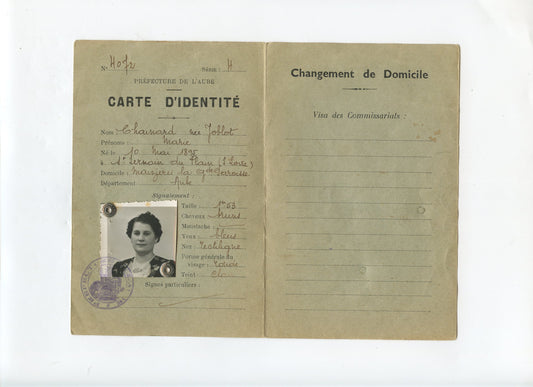 N° 4072 Série : H
PRÉFECTURE DE L'AUBE
CARTE D'IDENTITÉ
Nom Chainard née Joblot
Prénoms : Marie
Né le 10 Mai 1895
à St Germain du Plain (S. Loire)
Domicile : la Gde Paroisse
Département : Aube
Signalement :
Taille : 1m63
Cheveux :
Moustache :
Yeux : bleus
Nez : Rectiligne
Forme générale du
visage : Ronde
Teint : Clair
Signes particuliers :
Changement de Domicile
Visa des Commissariats :